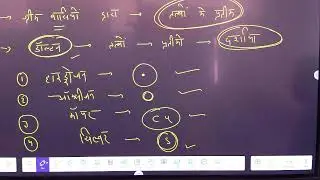 ग्रीक वासियों द्वारा → तत्वों के प्रतीक
→ डॉल्टन → तत्वों → प्रतीकों → दर्शाया
① हाइड्रोजन →
② ऑक्सीजन →
③ कॉपर → Cu
④ सिल्वर → S